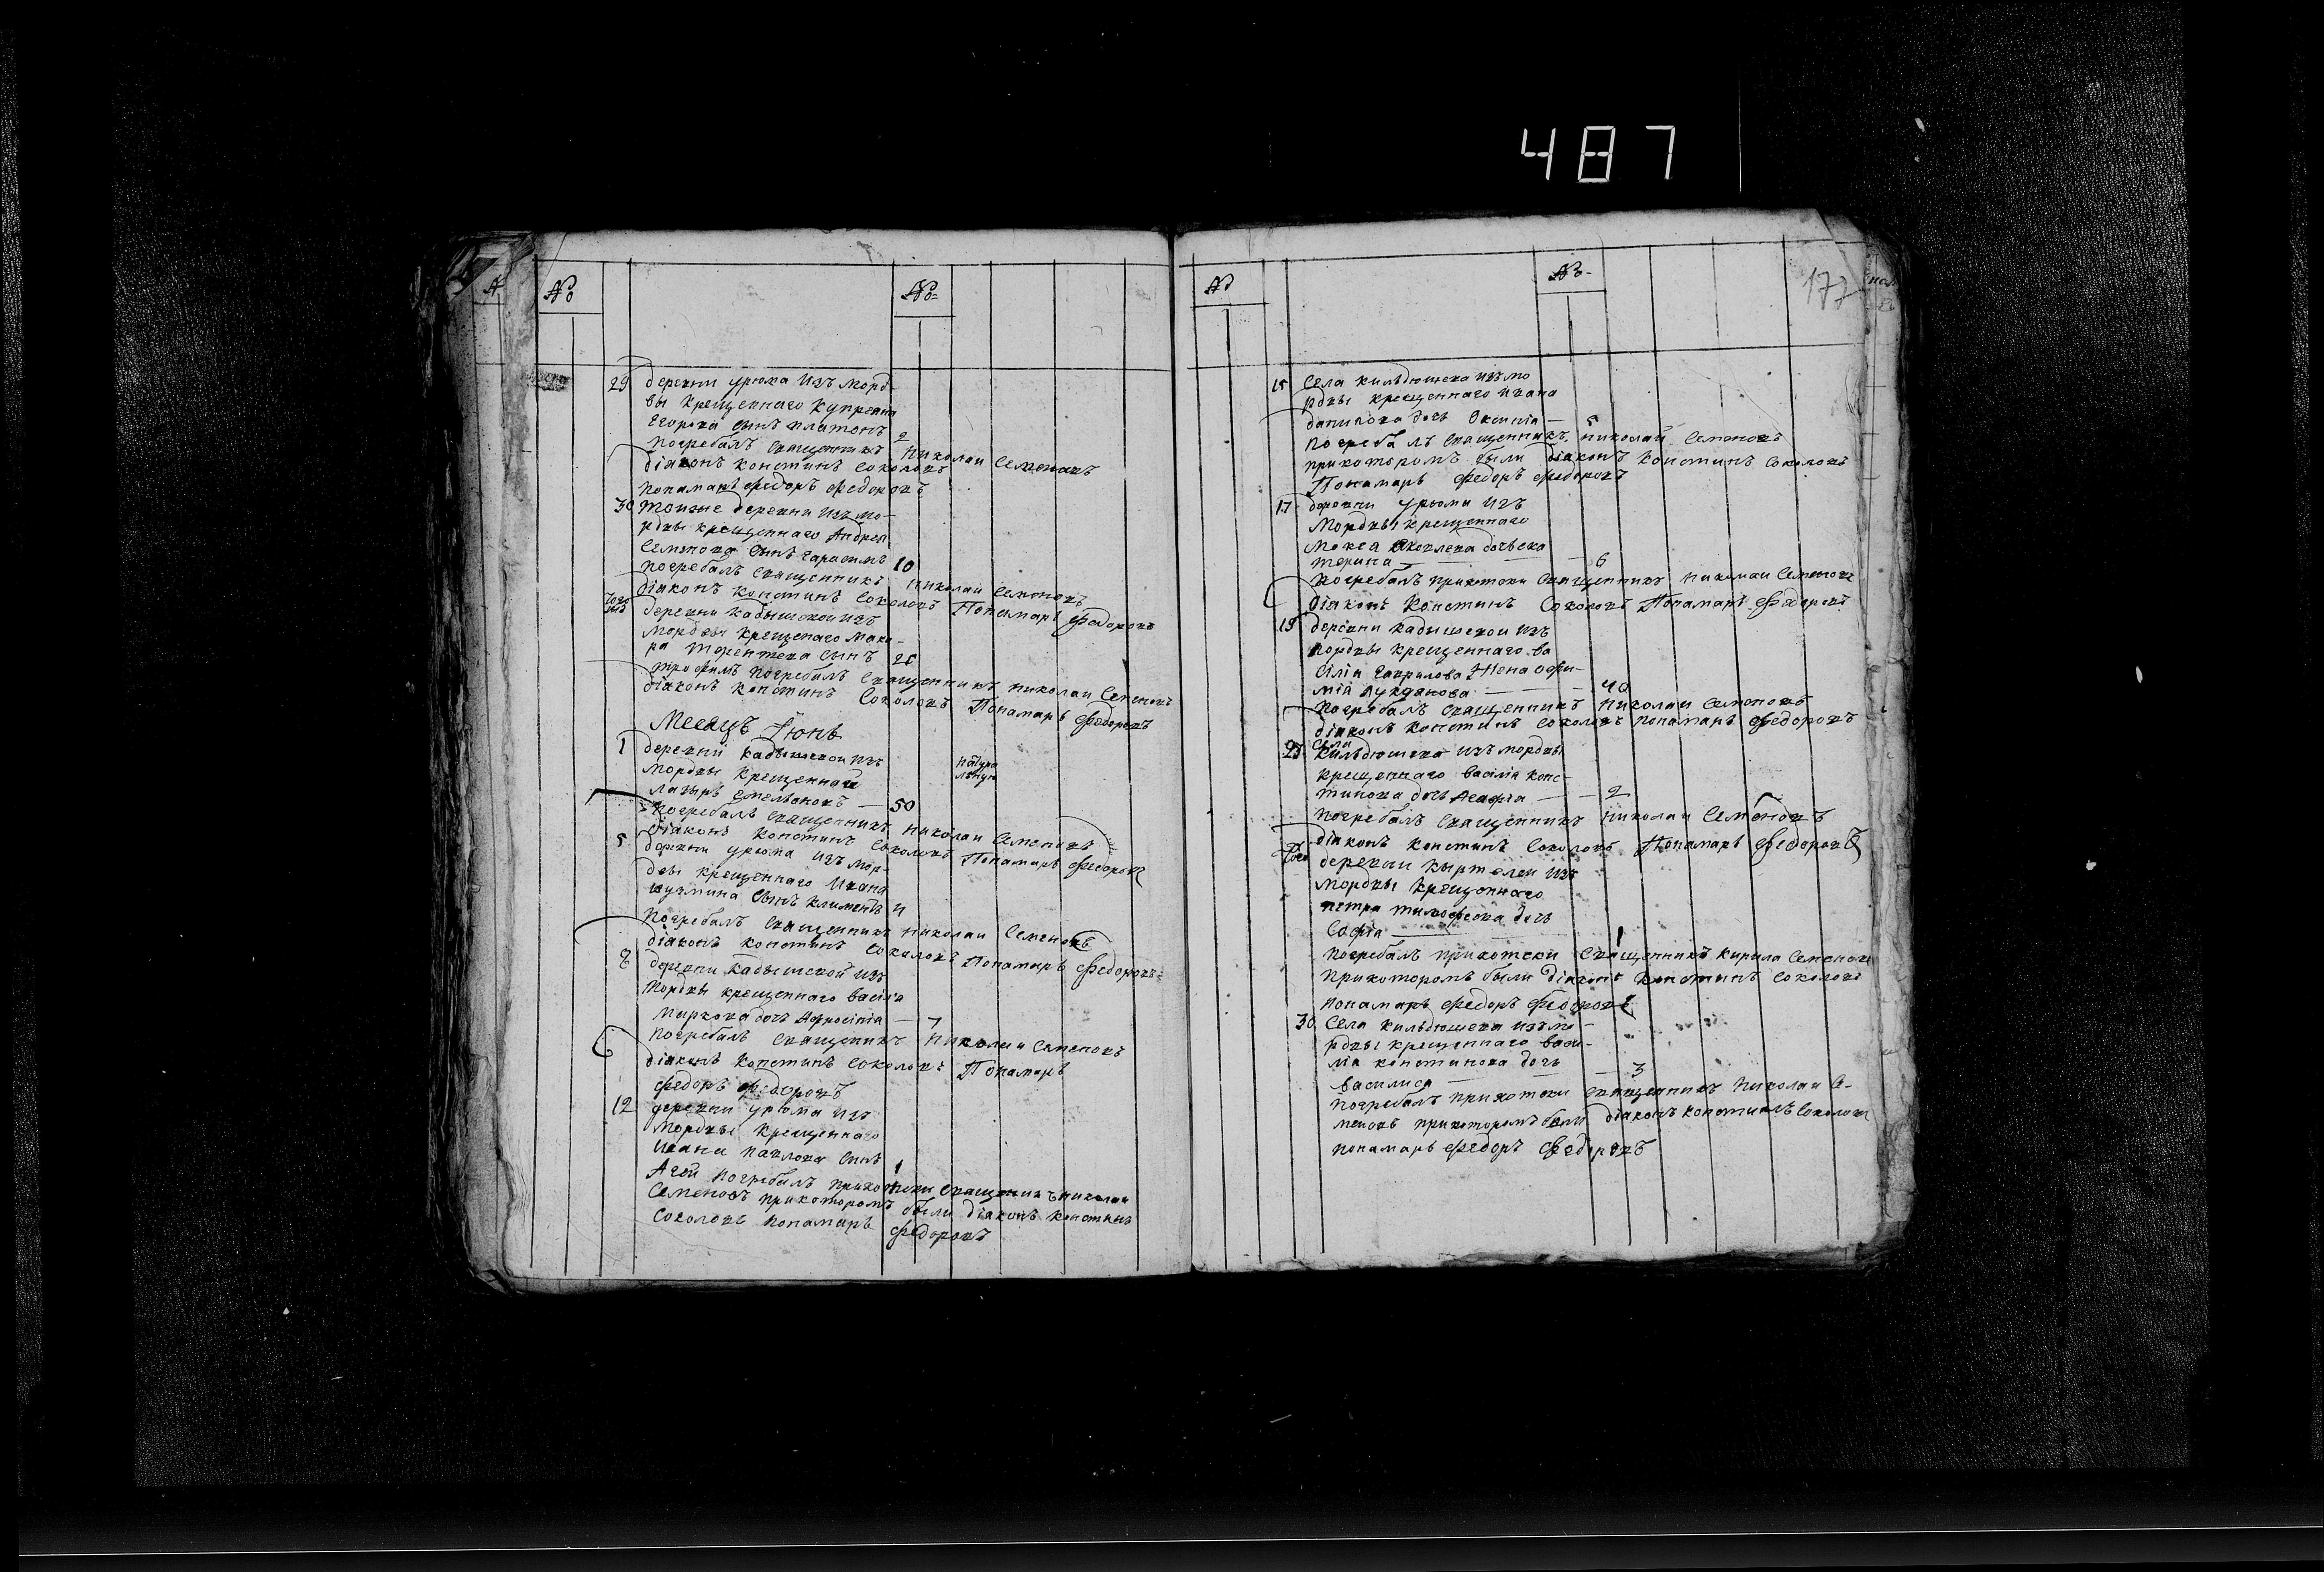 487
177
№
№
29 деревни урюма изъ морд-
вы крещеннаго купреяна
Егорова сынъ платонъ 2
погребалъ священникъ Николаи Семеновъ
діаконъ констинъ соколовъ
понамарь федоръ федоровъ
30 тоиже деревни изъ мо-
рдвы крещеннаго Андрея
Семенова сынъ гарасимъ 10
погребалъ священникъ Николаи Семеновъ
діаконъ констинъ соколовъ Понамарь федоровъ
того деревни кадышевои изъ
мордвы крещенаго мака-
ра терентева сынъ
трофимъ погребалъ священникъ николаи Семеновъ
діаконъ констинъ соколовъ Понамарь федоровъ
Месяцъ Іюнь
1 деревни кадышевои изъ
мордвы крещеннаго
лазырь емельяновъ — 50
погребалъ священникъ николаи Семеновъ
діаконъ констинъ соколовъ Понамарь федоровъ
5 деревни урюма изъ мор-
двы крещеннаго Ивана
кузмина сынъ климентъ 4
погребалъ священникъ николаи Семеновъ
діаконъ констинъ соколовъ Понамарь федоровъ
8 деревни кадышевой изъ
мордвы крещеннаго васіліа
маркова дочь Афросініа — 7
погребалъ священникъ николаи Семеновъ
діаконъ констинъ соколовъ Понамарь
федоръ федоровъ
12 деревни урюма изъ
мордвы крещеннаго
ивана павлова сынъ 1
Агей погребалъ священникъ николаи
Семеновъ прикоторомъ были діаконъ констинъ
соколовъ понамарь федоровъ
№
№
15 Села кильдюшева изъ мо
рдвы крещеннаго ивана
данилова дочь Оксиніа — 5
погребалъ священникъ николай Семеновъ
прикоторомъ были діаконъ констинъ соколовъ
Понамарь федоръ федоровъ
17 деревни урюмы изъ
мордвы крещеннаго
мокея яковлева дочь ека
терина — 6
погребалъ священникъ николаи Семеновъ
діаконъ констинъ соколовъ Понамарь федоровъ
19 деревни кадышевои изъ
мордвы крещеннаго ва
сіліа гаврилова жена офи-
міа — 40
погребалъ священникъ николаи Семеновъ
діаконъ констинъ соколовъ понамарь федоровъ
23 села
кильдюшева изъ мордвы
крещеннаго васіліа конс-
тинова дочь Агафіа — 2
погребалъ священникъ николаи Семеновъ
діаконъ констинъ соколовъ Понамарь федоровъ
того деревни кыртелеи изъ
мордвы крещеннаго
петра тимофеева дочь
Софіа — 1
погребалъ священникъ кирила Семеновъ
прикоторомъ были діаконъ констинъ соколовъ
понамарь федоръ федоровъ
30 Села кильдюшева изъ мо-
рдвы крещеннаго васи-
ліа констинова дочь
василиса — 3
погребалъ священникъ николаи Се-
меновъ прикоторомъ были діаконъ констинъ соколовъ
понамарь федоръ федоровъ